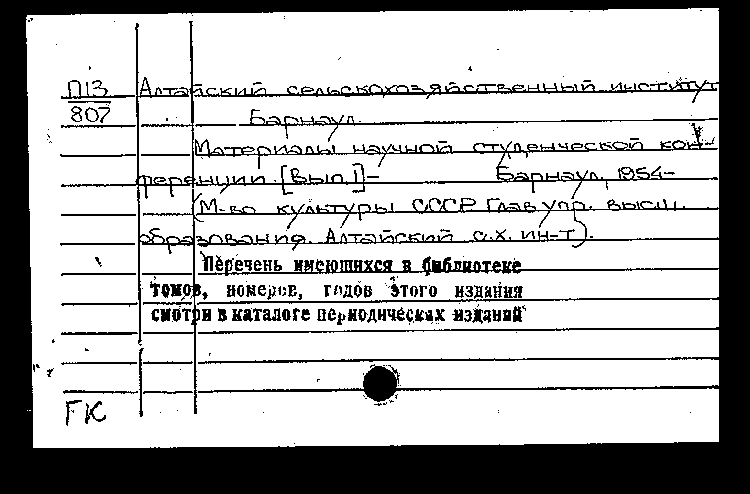 П13 Алтайский сельскохозяйственный институт
807 Барнаул.
Материалы научной студенческой кон-
ференции. [Вып. 1]- Барнаул, 1954-
(М-во культуры СССР. Глав. упр. высш.
образования. Алтайский с.х. ин-т).
Перечень имеющихся в библиотеке
томов, номеров, годов этого издания
смотри в каталоге периодических изданий
ГК